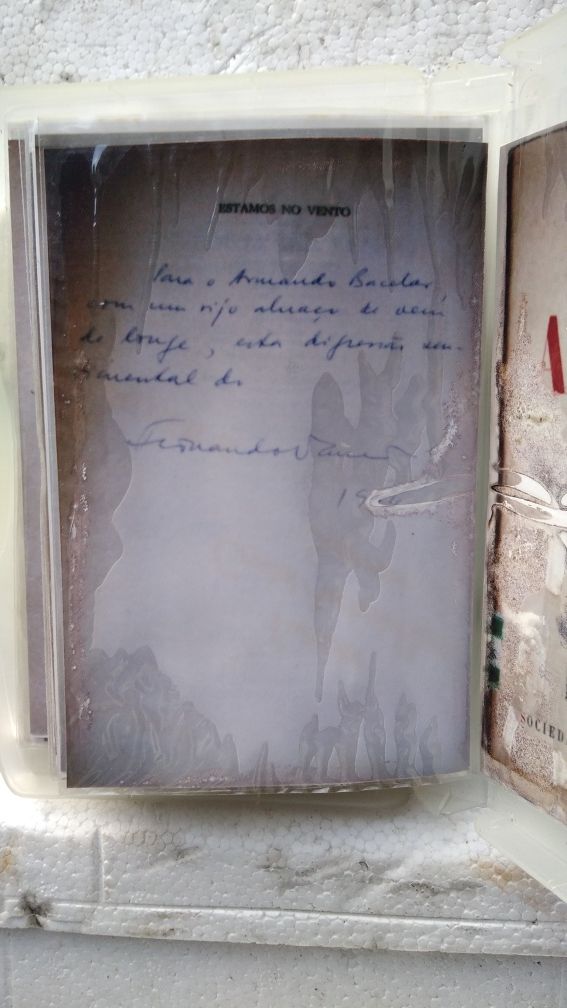 ESTAMOS NO VENTO
Para o Armando Bacelar
com um rijo abraço de
de longe, esta digressão sen-
timental do
Fernando
19
A
SOCIED